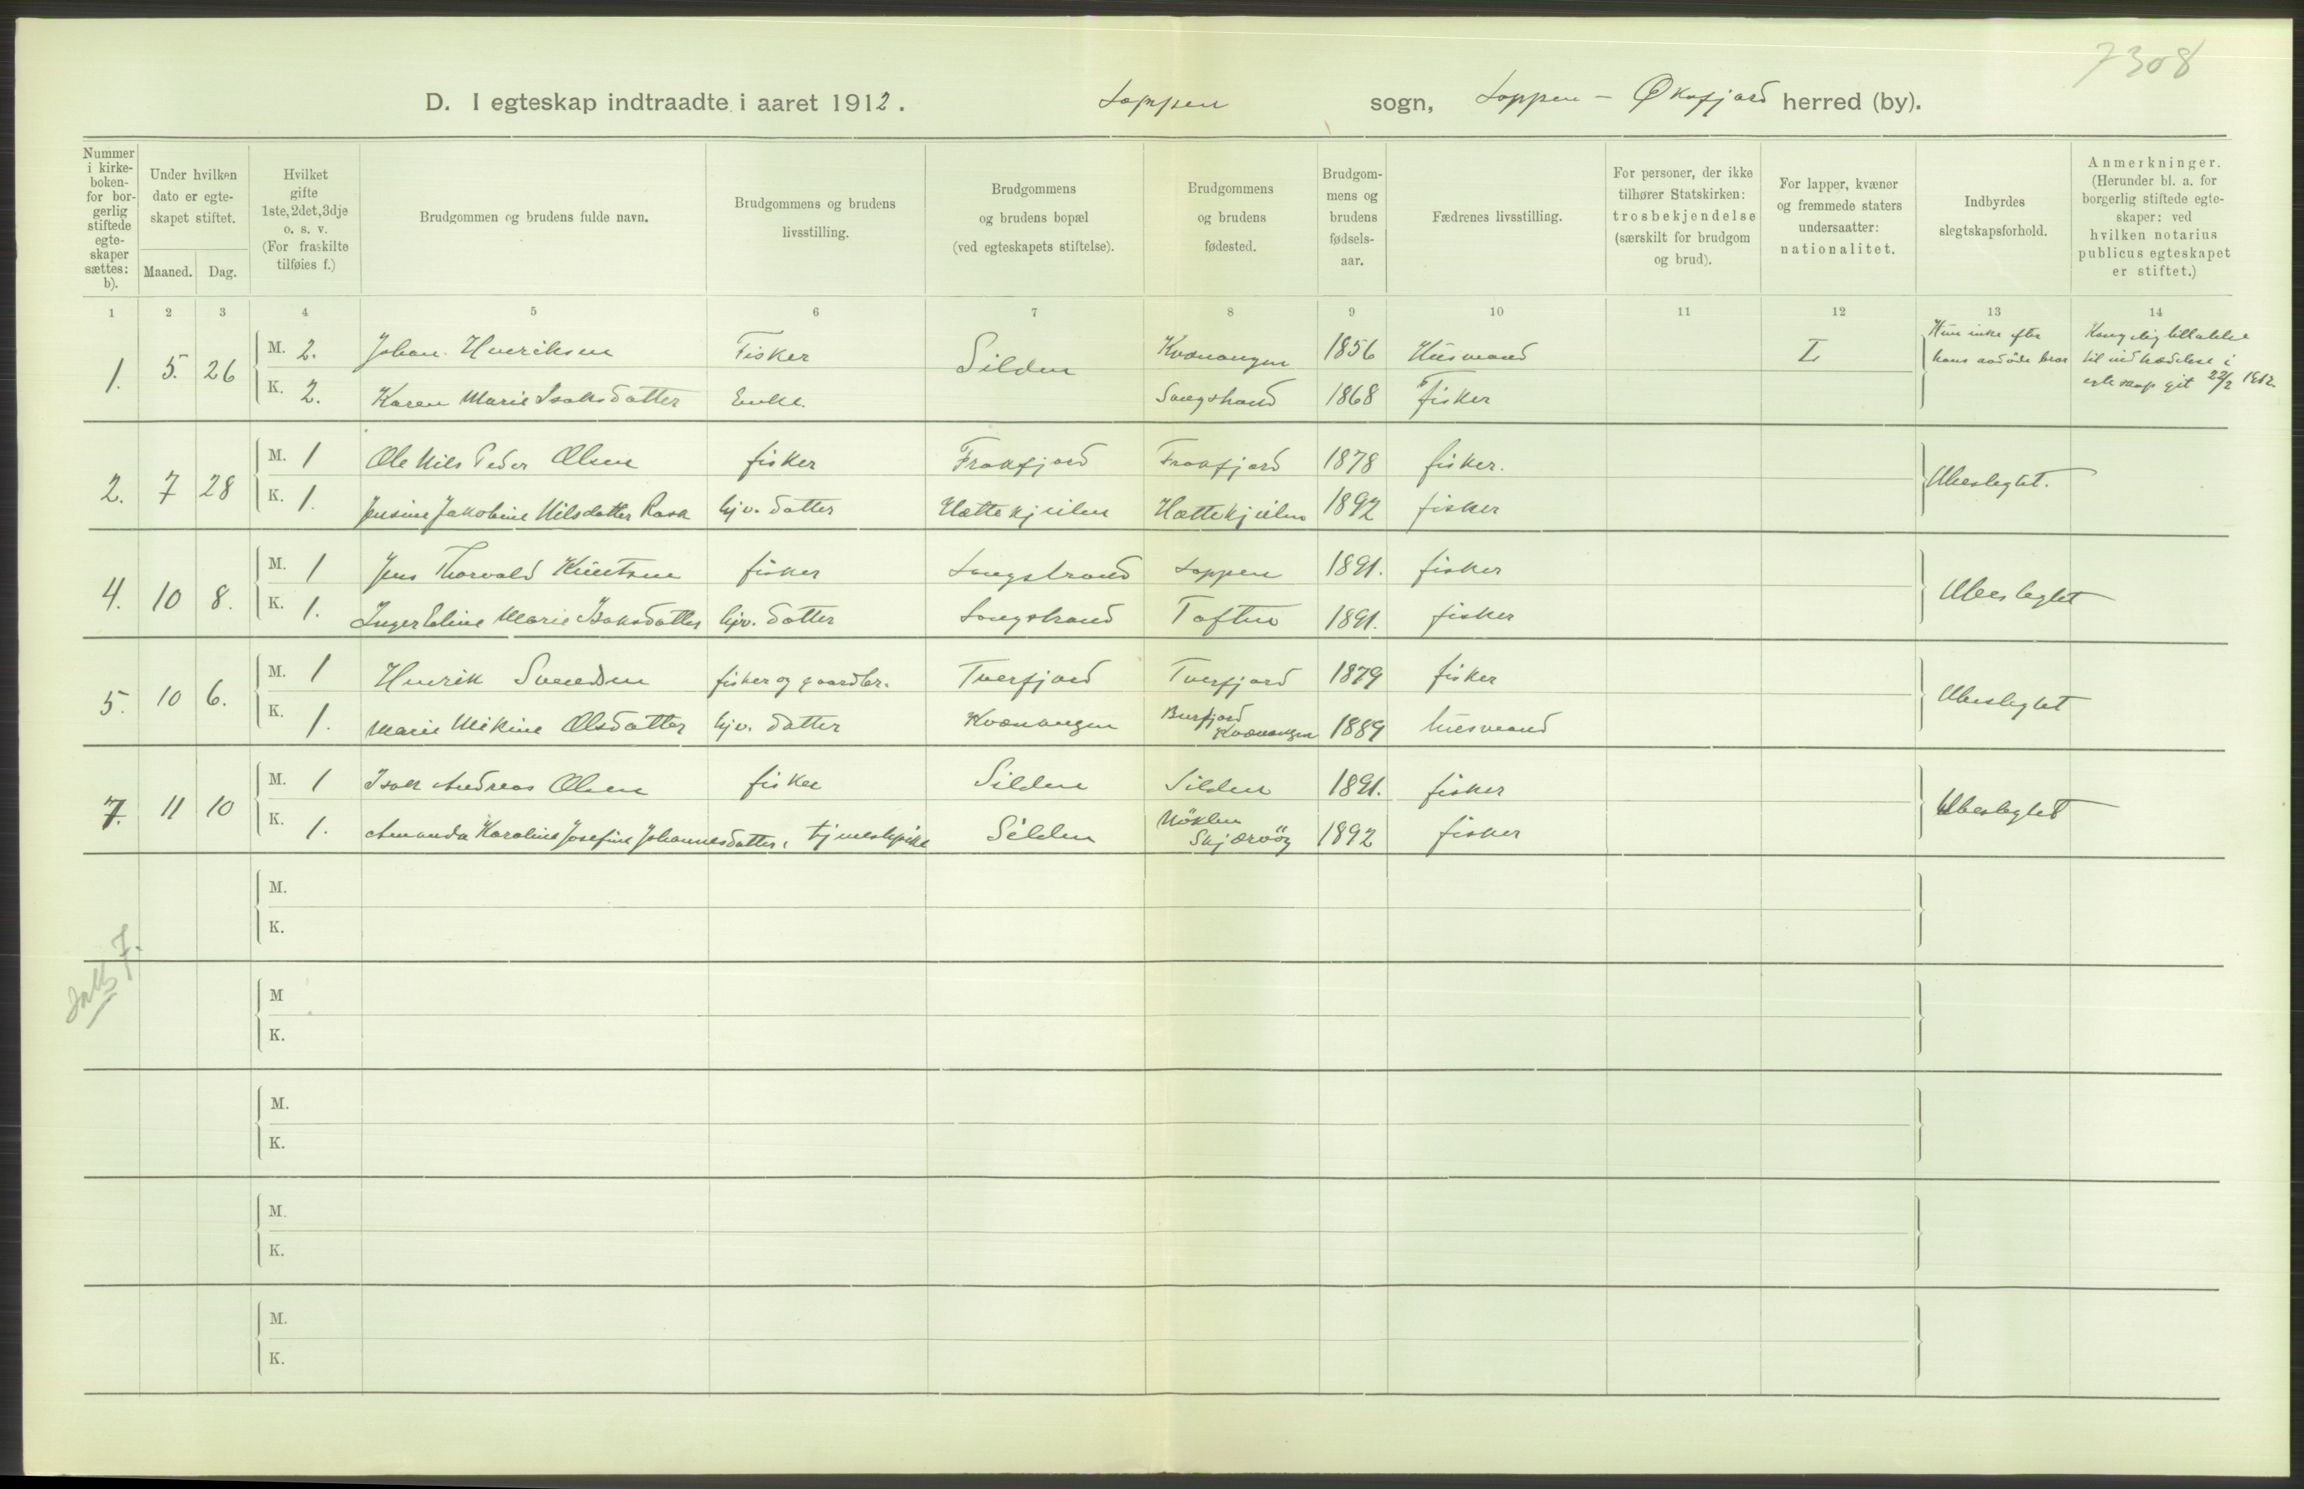 7308
D. I egteskap indtraadte i aaret 1912. Loppen sogn, Loppen - Øksfjord herred (by).
Nummer i kirkeboken for borgerlig stiftede egteskaper sættes: b).
Under hvilken dato er egteskapet stiftet.
Maaned. Dag.
Hvilket gifte 1ste, 2det, 3dje o. s. v. (For fraskilte tilføies f.)
Brudgommen og brudens fulde navn.
Brudgommens og brudens livsstilling.
Brudgommens og brudens bopæl (ved egteskapets stiftelse).
Brudgommens og brudens fødested.
Brudgommens og brudens fødselsaar.
Fædrenes livsstilling.
For personer, der ikke tilhører Statskirken: trosbekjendelse (særskilt for brudgom og brud).
For lapper, kvæner og fremmede staters undersaatter: nationalitet.
Indbyrdes slegtskapsforhold.
Anmerkninger. (Herunder bl. a. for borgerlig stiftede egteskaper: ved hvilken notarius publicus egteskapet er stiftet.)
1 2 3 4 5 6 7 8 9 10 11 12 13 14
1. 5. 26 M. 2. Johan Henriksen Fisker Silden Kvænangen 1856 Husmand L Hun enke efter hans avdøde bror Kongelig tilladelse til indtrædelse i egteskap git 22/2 1912.
K. 2. Karen Marie Isaksdatter Enke. Langstrand 1868 fisker
2. 7 28 M. 1 Ole Nils Peder Olsen fisker Frakfjord Frakfjord 1878 fisker. Ubeslegtet.
K. 1. Jensine Jakobine Nilsdatter Rask hjv. datter Hættekjeilen Hættekjeilen 1892 fisker
4. 10 8. M. 1 Jens Thorvald Knutsen fisker Langstrand Loppen 1891. fisker Ubeslegtet
K. 1. Inger Eline Marie Isaksdatter hjv. datter Langstrand Toften 1891. fisker
5. 10 6. M. 1 Henrik Svendsen fisker og gaardbr. Tverfjord Tverfjord 1879 fisker Ubeslegtet
K. 1. Marie Mekine Olsdatter hjv. datter Kvænangen Burfjord Kvænangen 1889 husmand
7. 11 10 M. 1 Isak Andreas Olsen fisker Silden Silden 1891. fisker Ubeslegtet
K. 1. Amanda Karoline Josefine Johannesdatter, tjenestepike Silden Nöklen Skjærvöy 1892 fisker
M.
K.
7.
M
K.
M.
K.
M.
K.
M.
K.